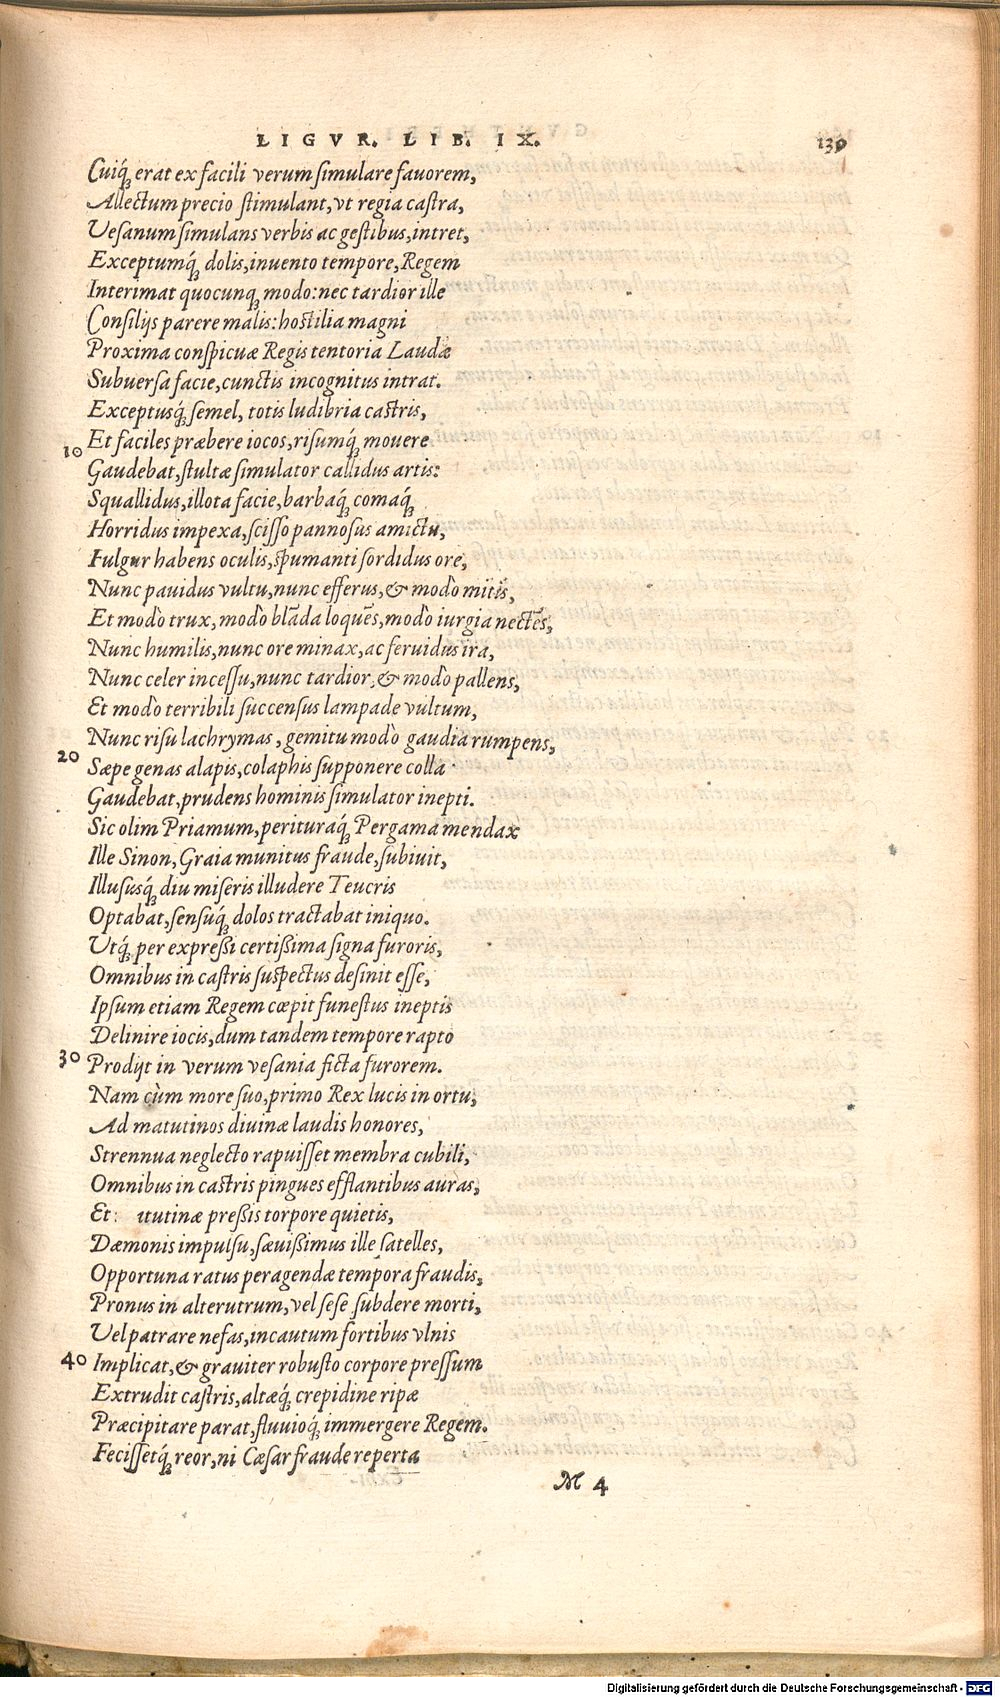 LIGVR. LIB. IX. 139
Cuiq́ꝫ erat ex facili verum simulare fauorem,
Allectum precio stimulant, vt regia castra,
Vesanum simulans verbis ac gestibus, intret,
Exceptumq́ꝫ dolis, inuento tempore, Regem
Interimat quocunqꝫ modo: nec tardior ille
Consilijs parere malis: hostilia magni
Proxima conspicuæ Regis tentoria Laudæ
Subuersa facie, cunctis incognitus intrat.
Exceptusq́ꝫ semel, totis ludibria castris,
10 Et faciles præbere iocos, risumq́ꝫ mouere
Gaudebat, stultæ simulator callidus artis:
Squallidus, illota facie, barbaq́ꝫ comaq́ꝫ
Horridus impexa, scisso pannosus amictu,
Fulgur habens oculis, spumanti sordidus ore,
Nunc pauidus vultu, nunc efferus, & modò mitis,
Et modò trux, modò blãda loquẽs, modò iurgia nectẽs,
Nunc humilis, nunc ore minax, ac feruidus ira,
Nunc celer incessu, nunc tardior, & modò pallens,
Et modò terribili succensus lampade vultum,
20 Nunc risu lachrymas, gemitu modò gaudia rumpens,
Sæpe genas alapis, colaphis supponere colla
Gaudebat, prudens hominis simulator inepti.
Sic olim Priamum, perituraq́ꝫ Pergama mendax
Ille Sinon, Graia munitus fraude, subiuit,
Illususq́ꝫ diu miseris illudere Teucris
Optabat, sensúq́ꝫ dolos tractabat iniquo.
Utq́ꝫ per expreßi certißima signa furoris,
Omnibus in castris suspectus desinit esse,
Ipsum etiam Regem cœpit funestus ineptis
Delinire iocis, dum tandem tempore rapto
30 Prodijt in verum vesania ficta furorem.
Nam cùm more suo, primo Rex lucis in ortu,
Ad matutinos diuinæ laudis honores,
Strennua neglecto rapuisset membra cubili,
Omnibus in castris pingues efflantibus auras,
Et utinæ preßis torpore quietis,
Dæmonis impulsu, sæuißimus ille satelles,
Opportuna ratus peragendæ tempora fraudis,
Pronus in alterutrum, vel sese subdere morti,
Vel patrare nefas, incautum fortibus vlnis
40 Implicat, & grauiter robusto corpore pressum
Extrudit castris, altæq́ꝫ crepidine ripæ
Præcipitare parat, fluuioq́ꝫ immergere Regem.
Fecissetq́ꝫ reor, ni Cæsar fraude reperta
M 4
Digitalisierung gefördert durch die Deutsche Forschungsgemeinschaft - DFG